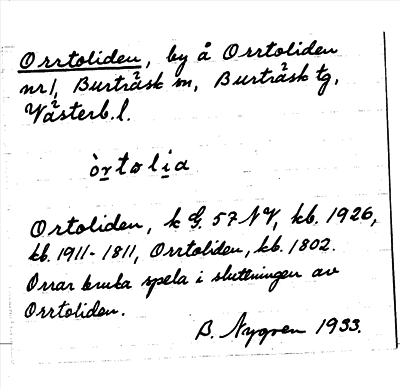 Orrtoliden, by å Orrtoliden
nr 1, Burträsk sn, Burträsk tg,
Västerb.l.
òrtolia
Ortoliden, k G. 57 NV, kb. 1926,
kb. 1911-1811, Orrtoliden, kb. 1802.
Orrar bruka spela i sluttningen av
Orrtoliden.
B. Nygren 1933.